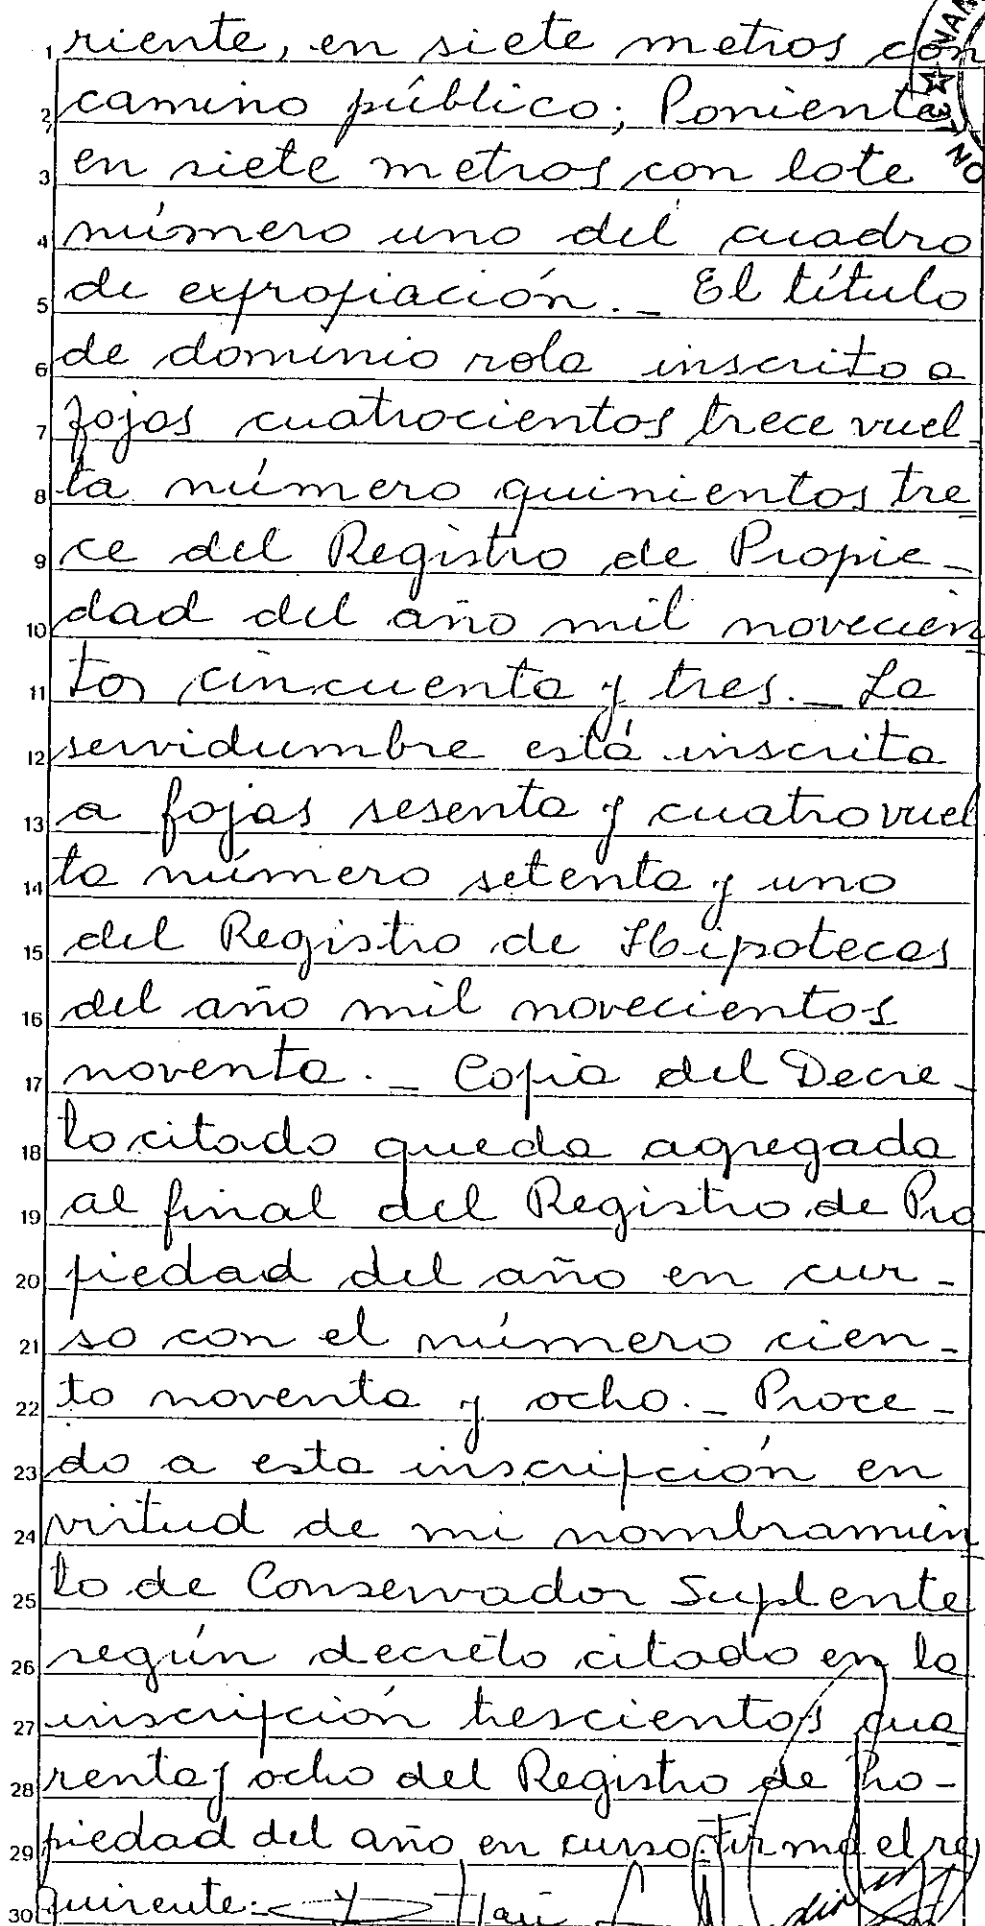 1 riente, en siete metros con
2 camino público; Poniente
3 en siete metros con lote
4 número uno del cuadro
5 de expropiación._ El título
6 de dominio rola inscrito a
7 fojas cuatrocientos trece vuel
8 ta número quinientos tre
9 ce del Registro de Propie-
10 dad del año mil novecien
11 tos cincuenta y tres._ La
12 servidumbre está inscrita
13 a fojas sesenta y cuatro vuel
14 ta número setenta y uno
15 del Registro de Hipotecas
16 del año mil novecientos
17 noventa._ Copia del Decre-
18 to citado queda agregada
19 al final del Registro de Pro
20 piedad del año en cur-
21 so con el número cien-
22 to noventa y ocho._ Proce-
23 do a esta inscripción en
24 virtud de mi nombramien
25 to de Conservador Suplente
26 según decreto citado en la
27 inscripción trescientos cua
28 renta y ocho del Registro de Pro-
29 piedad del año en curso. Firma el re
30 quirente: